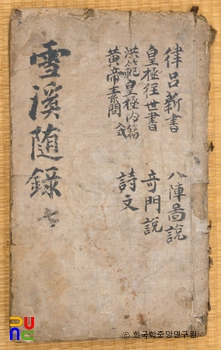 雪溪隨錄 七
律呂新書 八陣圖說
皇極經世書 奇門說
洪範皇極內篇 詩文
黃帝素問
© 한국학중앙연구원